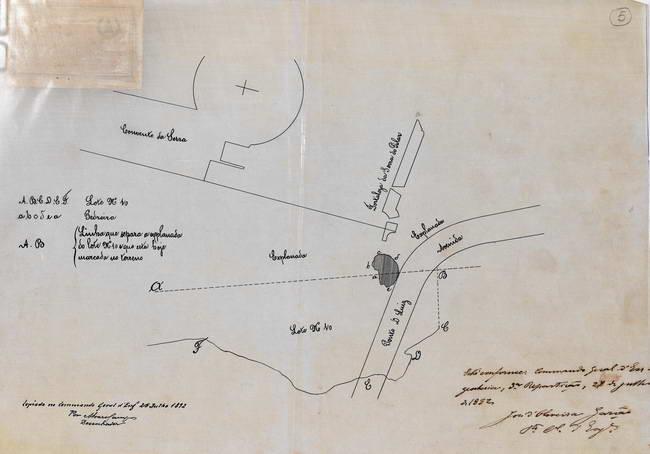 5
Convento da Serra
Fortaleza da Serra do Pilar
A. B C D E F Lote Nº 10
a b c d e a Pedreira
A. B Linha que separa a esplanada
do lote Nº 10 e que está hoje
marcada no terreno
Esplanada
Esplanada
Avenida
Ponte D Luiz
Lote Nº 10
A
B
C
D
E
F
Copiado no Commando Geral d'Eng. 28 Julho 1892
Por
Desenhador
Está conforme. Commando Geral d'En-
genheria, 3ª Repartição, 28 de julho
de 1892.